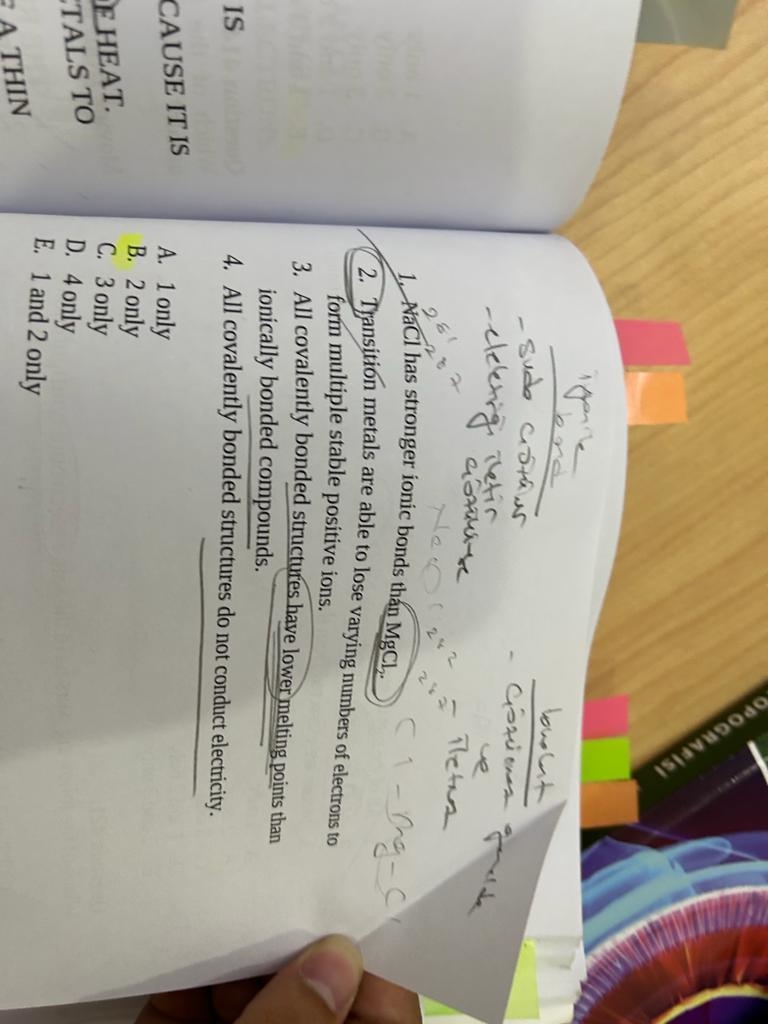 IS
CAUSE IT IS
HEAT.
TALS TO
A THIN
iyonik bond
- Suda çözünür
- elektriği iletir
çözünürse
kovalent
- çözünmez genelde
ve
- iletmez
2 8 1
2 8 7
2 8 2
2 8 7
Cl - Mg - Cl
1. NaCl has stronger ionic bonds than MgCl₂.
2. Transition metals are able to lose varying numbers of electrons to
form multiple stable positive ions.
3. All covalently bonded structures have lower melting points than
ionically bonded compounds.
4. All covalently bonded structures do not conduct electricity.
A. 1 only
B. 2 only
C. 3 only
D. 4 only
E. 1 and 2 only
TOPOGRAFİSİ